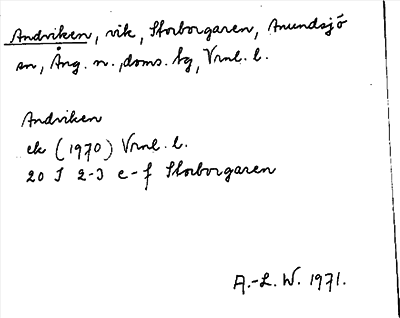 Andviken, vik, Storborgaren, Anundsjö
sn, Ång. n., doms. sg, Vrml. l.
Andviken
ek (1970) Vrml. l.
20 J 2-3 e-f Storborgaren
A.-L. W. 1971.